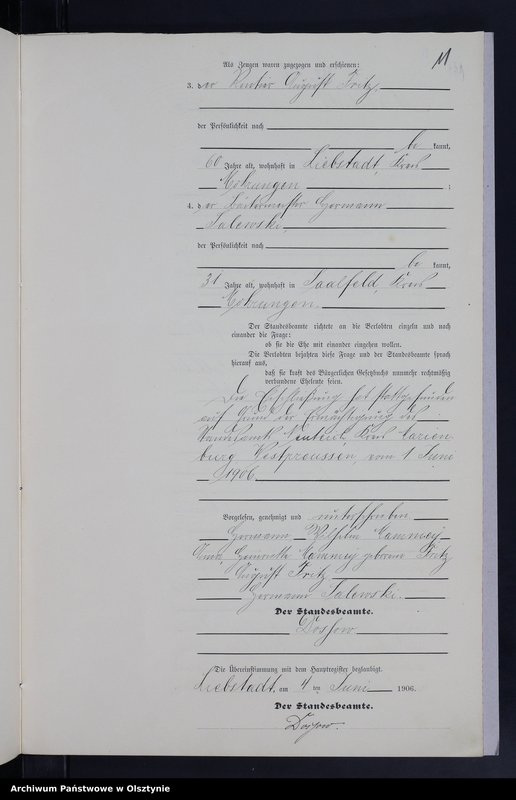 11
Als Zeugen waren zugezogen und erschienen:
3. der Rentier August Fritz
der Persönlichkeit nach
be kannt,
60 Jahre alt, wohnhaft in Liebstadt, Kreis
Mohrungen ;
4. der Bäckermeister Hermann
Salewski
der Persönlichkeit nach
be kannt,
31 Jahre alt, wohnhaft in Saalfeld, Kreis
Mohrungen.
Der Standesbeamte richtete an die Verlobten einzeln und nach
einander die Frage:
ob sie die Ehe mit einander eingehen wollen.
Die Verlobten bejahten diese Frage und der Standesbeamte sprach
hierauf aus,
daß sie kraft des Bürgerlichen Gesetzbuchs nunmehr rechtmäßig
verbundene Eheleute seien.
Die Eheschließung hat stattgefunden
auf Grund der Ermächtigung des
Standesamts Neuteich, Kreis Marien
burg Westpreussen, vom 1 Juni
1906
Vorgelesen, genehmigt und unterschrieben
Hermann Wilhelm
Henriette geborene Fritz
August Fritz
Hermann Salewski.
Der Standesbeamte.
Dossow
Die Übereinstimmung mit dem Hauptregister beglaubigt.
Liebstadt, am 4 ten Juni 1906.
Der Standesbeamte.
Dossow.
Archiwum Państwowe w Olsztynie